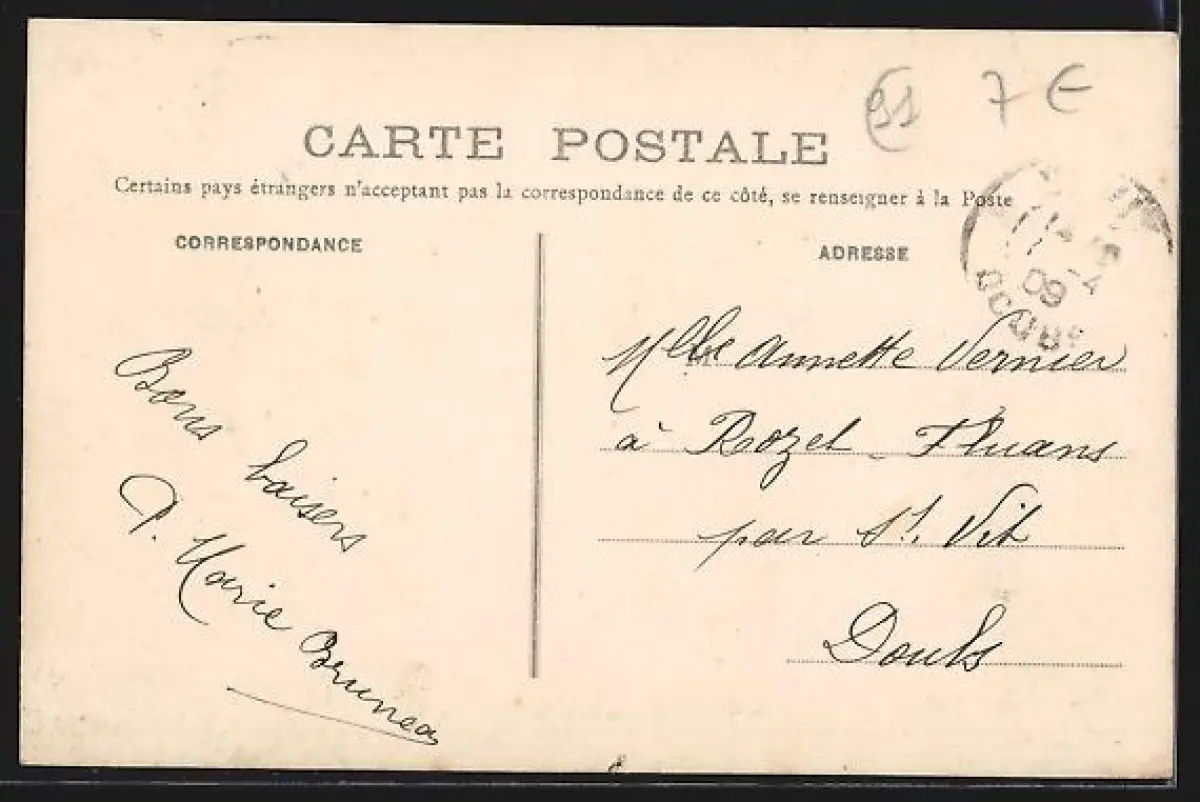 91 7 €
CARTE POSTALE
Certains pays étrangers n'acceptant pas la correspondance de ce côté, se renseigner à la Poste
CORRESPONDANCE
Bons baisers
P. Marie Bruneau
ADRESSE
09
DOUBS
Melle Annette Vernier
à Rozet-Fluans
par St. Vit
Doubs